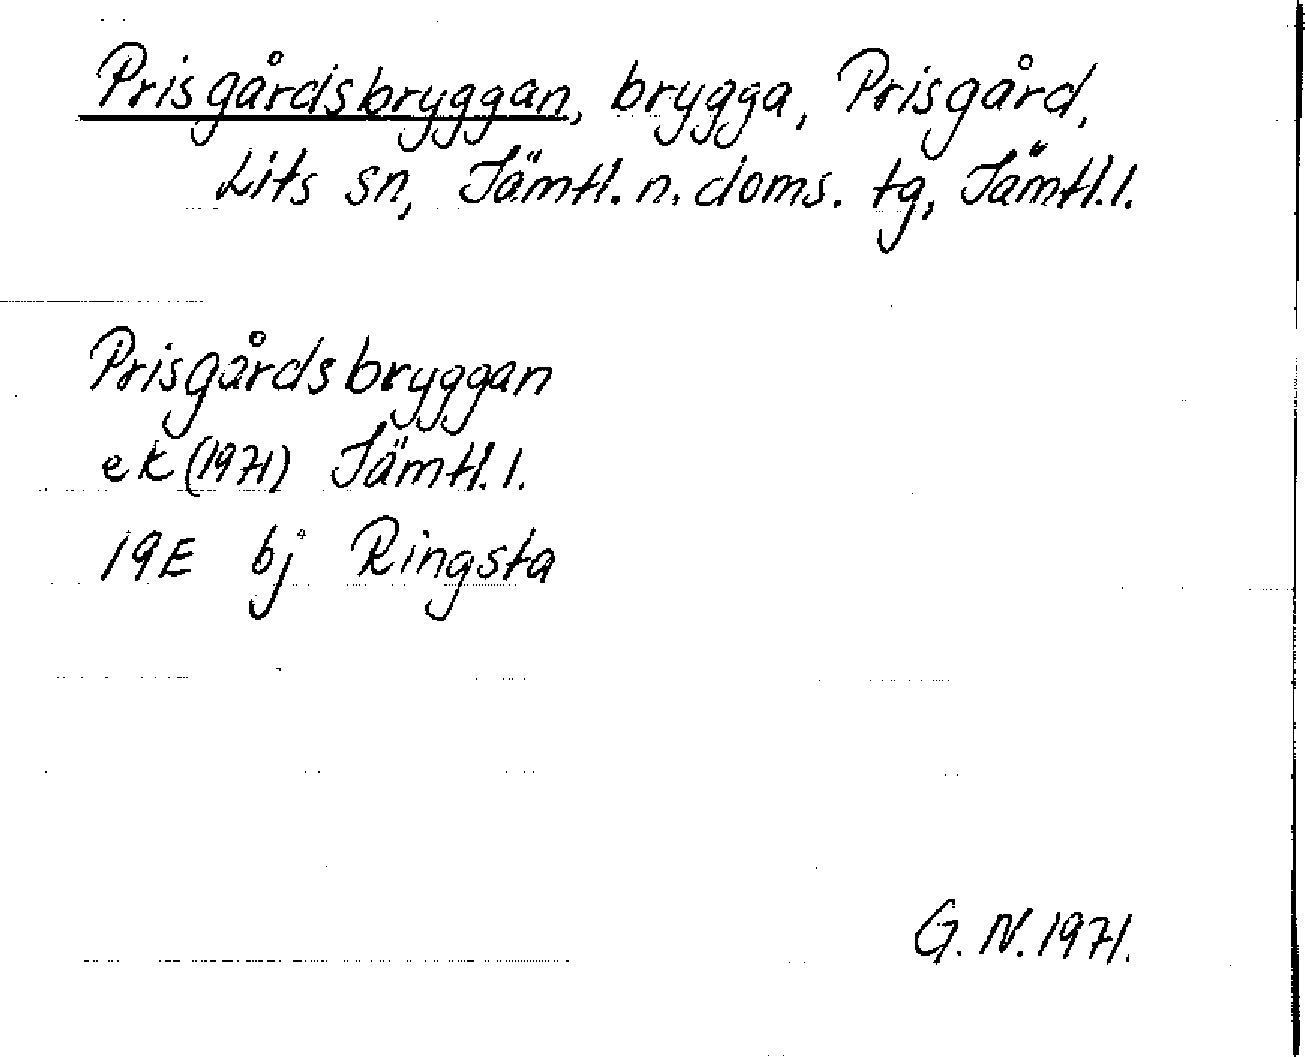 Prisgårdsbryggan, brygga, Prisgård,
Lits sn, Jämtl. n. doms. tg, Jämtl. l.
Prisgårdsbryggan
ek (1971) Jämtl. l.
19E bj Ringsta
G. N. 1971.